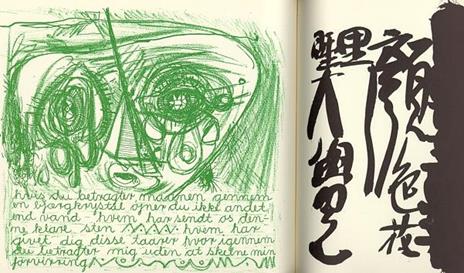 hvis du betragter maanen gennem
en bjergkrystal øjner du ikke andet
end vand hvem har sendt os den-
ne klare sten hvem har
givet dig disse taarer hvor igennem
du betragter mig uden at skelne min
forvirring
顏色花